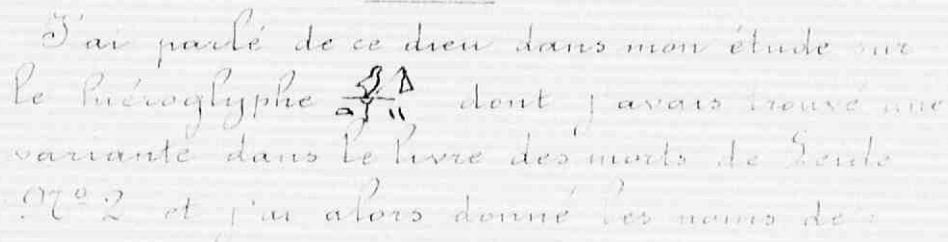 J'ai parlé de ce dieu dans mon étude sur
le hiéroglyphe dont j'avais trouvé une
variante dans le livre des morts de
Nº 2 et j'ai alors donné les noms de :